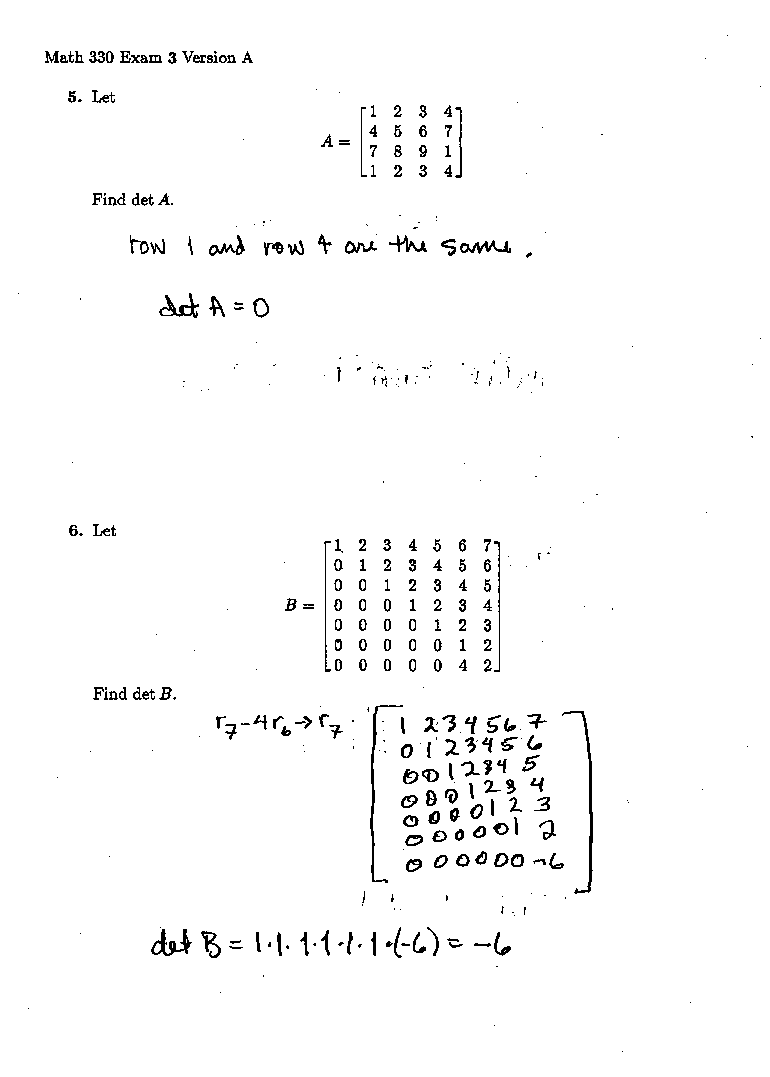 Math 330 Exam 3 Version A
5. Let
A =
1 2 3 4
4 5 6 7
7 8 9 1
1 2 3 4
Find det A.
row 1 and row 4 are the same.
det A = 0
6. Let
B =
1 2 3 4 5 6 7
0 1 2 3 4 5 6
0 0 1 2 3 4 5
0 0 0 1 2 3 4
0 0 0 0 1 2 3
0 0 0 0 0 1 2
0 0 0 0 0 4 2
Find det B.
r₇-4r₆→r₇
1 2 3 4 5 6 7
0 1 2 3 4 5 6
0 0 1 2 3 4 5
0 0 0 1 2 3 4
0 0 0 0 1 2 3
0 0 0 0 0 1 2
0 0 0 0 0 0 -6
det B = 1·1·1·1·1·1·(-6) = -6